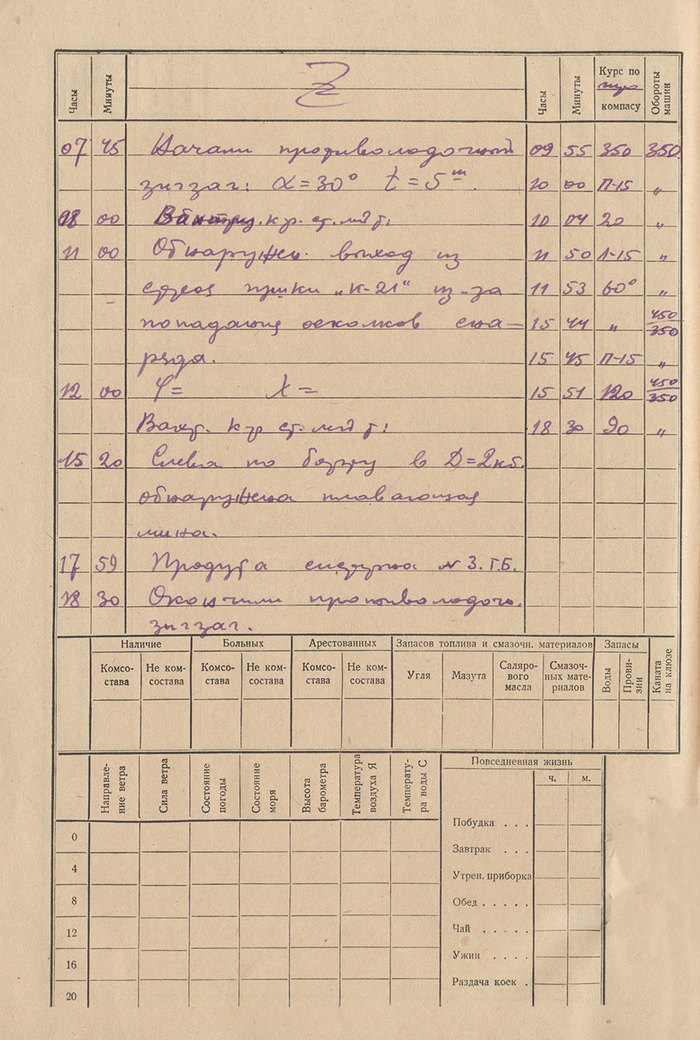 Часы Минуты Часы Минуты Курс по компасу Обороты машин
07 45 Начали противолодочный 09 55 350 350
зигзаг: α=30° t=5ᵐ. 10 00 П-15 "
08 00 кр. ст. л-т: 10 04 20 "
11 00 Обнаружен выход из 11 50 Л-15 "
строя пушки „К-21“ из-за 11 53 60° "
попадания осколков сна- 15 44 " 450/350
ряда. 15 45 П-15 "
12 00 φ= λ= 15 51 120 450/350
Вахт. к-р ст. л-т: 18 30 90 "
15 20 Слева по борту в D=2кб.
обнаружена плавающая
мина.
17 59 Продута N 3. Г.Б.
18 30 Окончили противолодочн.
зигзаг.
Наличие Больных Арестованных Запасов топлива и смазочн. материалов Запасы Каната на клюзе
Комсо-става Не ком-состава Комсо-става Не ком-состава Комсо-става Не ком-состава Угля Мазута Саляро-вого масла Смазоч-ных мате-риалов Воды Прови-зии
Направле-ние ветра Сила ветра Состояние погоды Состояние моря Высота барометра Температура воздуха Я Температу-ра воды С Повседневная жизнь
ч. м.
0
4
8
12
16
20
Побудка . . .
Завтрак . . .
Утрен. приборка
Обед . . . . .
Чай . . . . .
Ужин . . . .
Раздача коек .